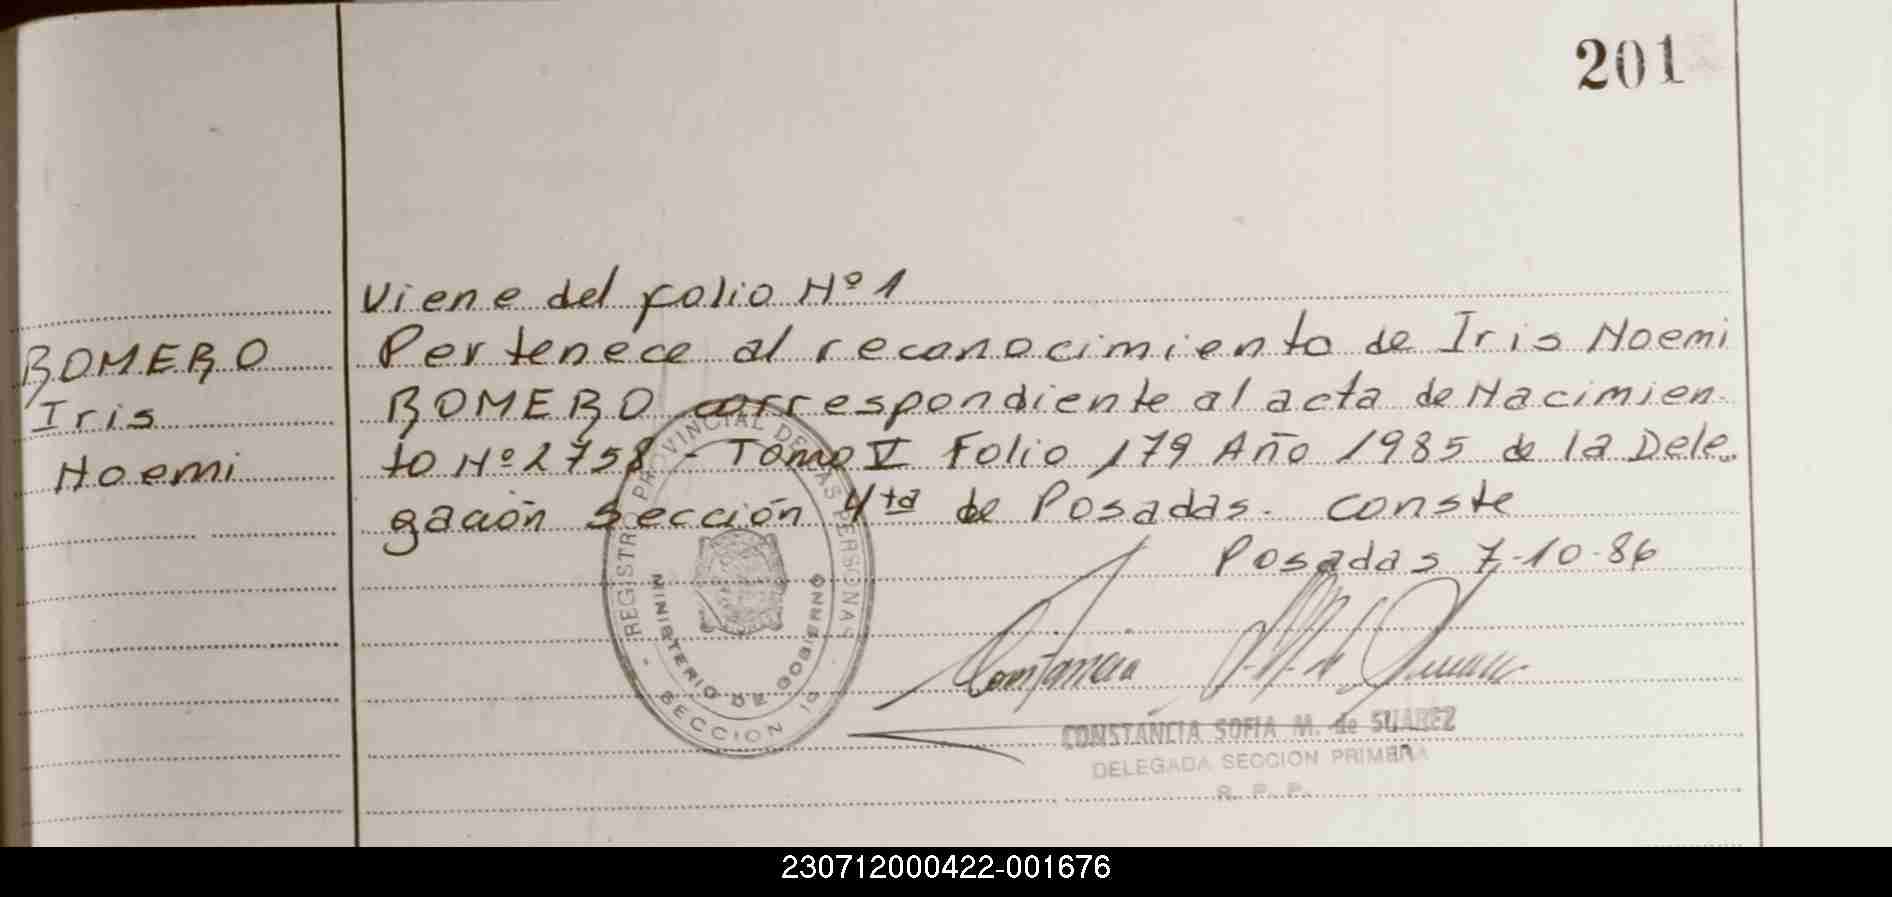 201
Viene del folio Nº 1
ROMERO
Iris
Noemi
Pertenece al reconocimiento de Iris Noemi
ROMERO correspondiente al acta de Nacimien-
to Nº 2758 - Tomo V Folio 179 Año 1985 de la Dele-
gación Sección 4ta de Posadas. conste
Posadas 7-10-86
REGISTRO PROVINCIAL DE LAS PERSONAS
MINISTERIO DE GOBIERNO
- SECCION 1a -
Constancia S. M. de Suarez
CONSTANCIA SOFIA M. de SUAREZ
DELEGADA SECCION PRIMERA
R. P. P.
230712000422-001676